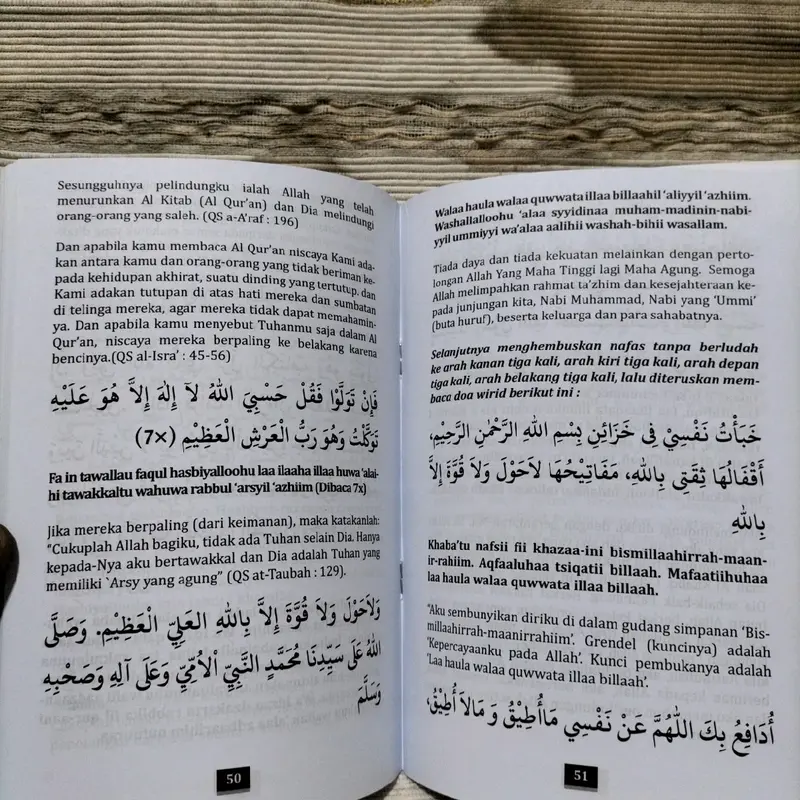 Sesungguhnya pelindungku ialah Allah yang telah
menurunkan Al Kitab (Al Qur'an) dan Dia melindungi
orang-orang yang saleh. (QS a-A'raf : 196)
Dan apabila kamu membaca Al Qur'an niscaya Kami ada-
kan antara kamu dan orang-orang yang tidak beriman ke-
pada kehidupan akhirat, suatu dinding yang tertutup. dan
Kami adakan tutupan di atas hati mereka dan sumbatan
di telinga mereka, agar mereka tidak dapat memahamin-
ya. Dan apabila kamu menyebut Tuhanmu saja dalam Al
Qur'an, niscaya mereka berpaling ke belakang karena
bencinya.(QS al-Isra' : 45-56)
فَإِنْ تَوَلَّوْا فَقُلْ حَسْبِيَ اللهُ لآ إِلٰهَ إِلاَّ هُوَ عَلَيْهِ
تَوَكَّلْتُ وَهُوَ رَبُّ الْعَرْشِ الْعَظِيْمِ (×7)
Fa in tawallau faqul hasbiyalloohu laa ilaaha illaa huwa 'alai-
hi tawakkaltu wahuwa rabbul 'arsyil 'azhiim (Dibaca 7x)
Jika mereka berpaling (dari keimanan), maka katakanlah:
"Cukuplah Allah bagiku, tidak ada Tuhan selain Dia. Hanya
kepada-Nya aku bertawakkal dan Dia adalah Tuhan yang
memiliki `Arsy yang agung" (QS at-Taubah : 129).
وَلاَحَوْلَ وَلاَ قُوَّةَ إِلاَّ بِاللهِ الْعَلِيِّ الْعَظِيْمِ. وَصَلَّى
اللهُ عَلَى سَيِّدِنَا مُحَمَّدٍ النَّبِيِّ اْلأُمِّيِّ وَعَلَى آلِهِ وَصَحْبِهِ
وَسَلَّمَ
50
Walaa haula walaa quwwata illaa billaahil 'aliyyil 'azhiim.
Washallalloohu 'alaa syyidinaa muham-madinin-nabi-
yyil ummiyyi wa'alaa aalihii washah-bihii wasallam.
Tiada daya dan tiada kekuatan melainkan dengan perto-
longan Allah Yang Maha Tinggi lagi Maha Agung. Semoga
Allah melimpahkan rahmat ta'zhim dan kesejahteraan ke-
pada junjungan kita, Nabi Muhammad, Nabi yang 'Ummi'
(buta huruf), beserta keluarga dan para sahabatnya.
Selanjutnya menghembuskan nafas tanpa berludah
ke arah kanan tiga kali, arah kiri tiga kali, arah depan
tiga kali, arah belakang tiga kali, lalu diteruskan mem-
baca doa wirid berikut ini :
خَبَأْتُ نَفْسِيْ فِى خَزَائِنِ بِسْمِ اللهِ الرَّحْمٰنِ الرَّحِيْمِ،
أَقْفَالُهَا ثِقَتِى بِاللهِ، مَفَاتِيْحُهَا لاَحَوْلَ وَلاَ قُوَّةَ إِلاَّ
بِاللهِ
Khaba'tu nafsii fii khazaa-ini bismillaahirrah-maan-
ir-rahiim. Aqfaaluhaa tsiqatii billaah. Mafaatiihuhaa
laa haula walaa quwwata illaa billaah.
"Aku sembunyikan diriku di dalam gudang simpanan 'Bis-
millaahirrah-maanirrahiim'. Grendel (kuncinya) adalah
'Kepercayaanku pada Allah'. Kunci pembukanya adalah
'Laa haula walaa quwwata illaa billaah'.
أُدَافِعُ بِكَ اللّٰهُمَّ عَنْ نَفْسِي مَاأُطِيْقُ وَ مَالاَ أُطِيْقُ،
51